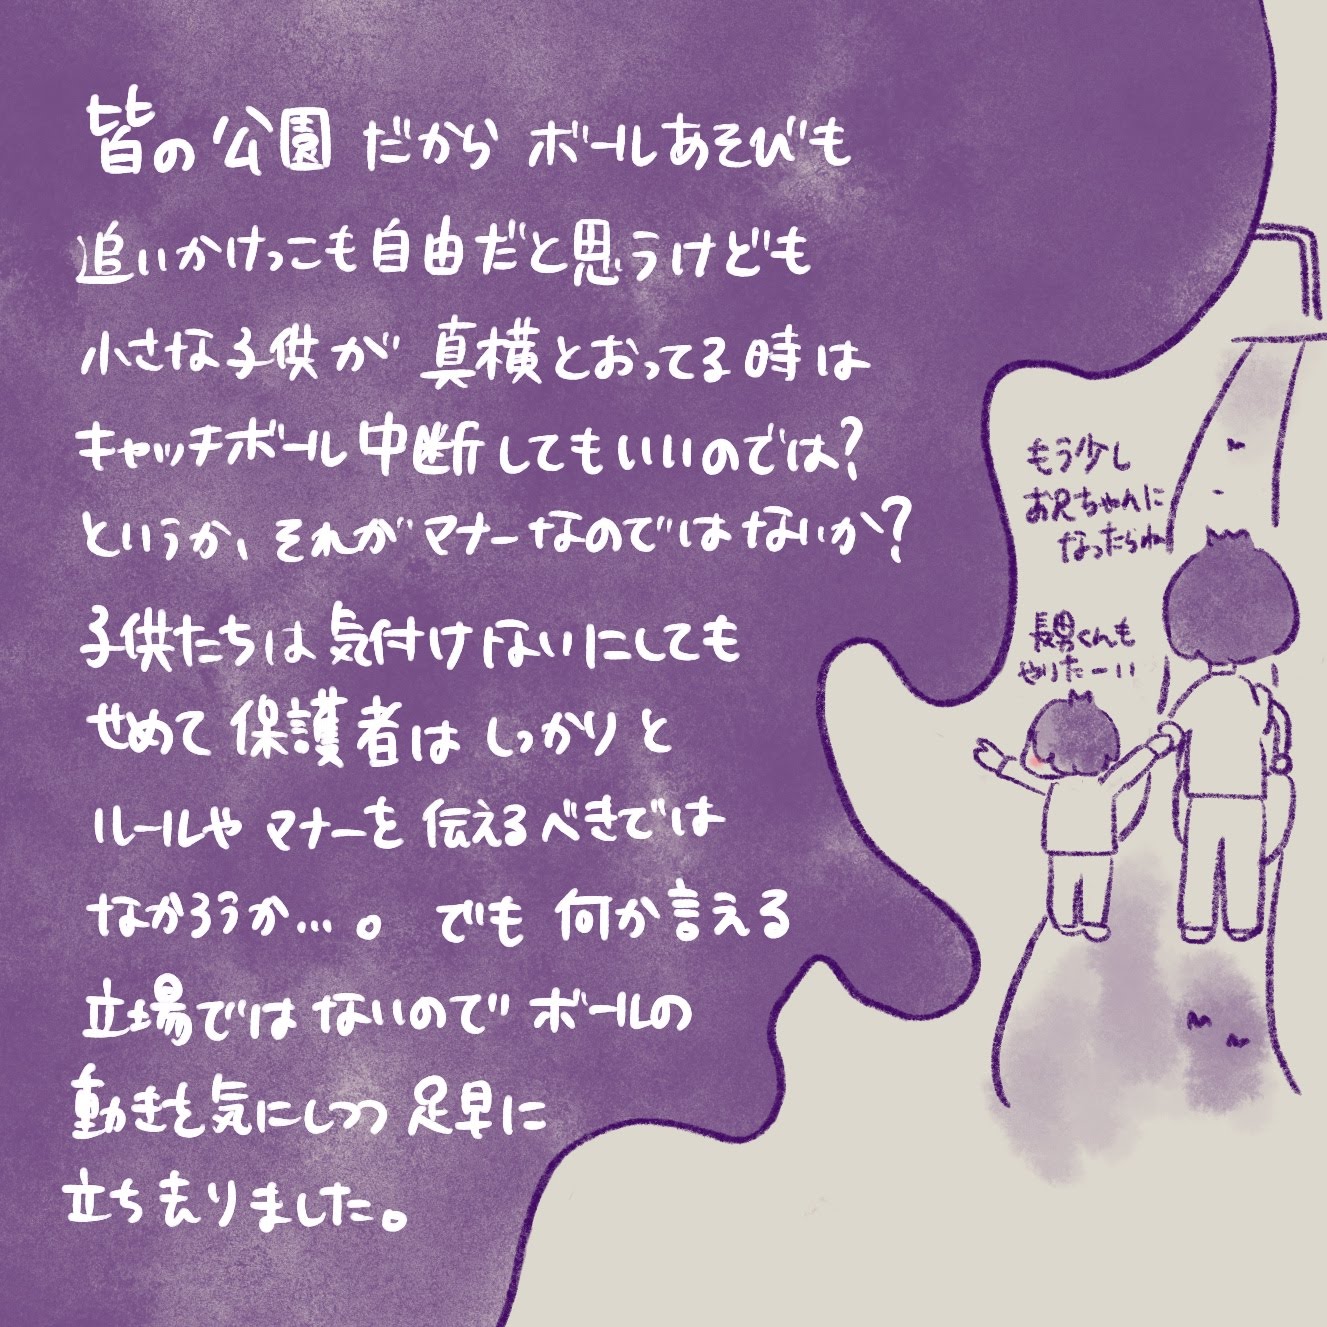 皆の公園 だから ボールあそびも
追いかけっこも自由だと思うけども
小さな子供が 真横とおってる時は
キャッチボール中断してもいいのでは?
というか、それがマナーなのではないか?
子供たちは気付けないにしても
せめて保護者はしっかりと
ルールや マナーを 伝えるべきでは
なかろうか…。 でも 何か言える
立場ではないので ボールの
動きを気にしつつ 足早に
立ち去りました。
もう少し
お兄ちゃんに
なったらね
長男くんも
やりたーい